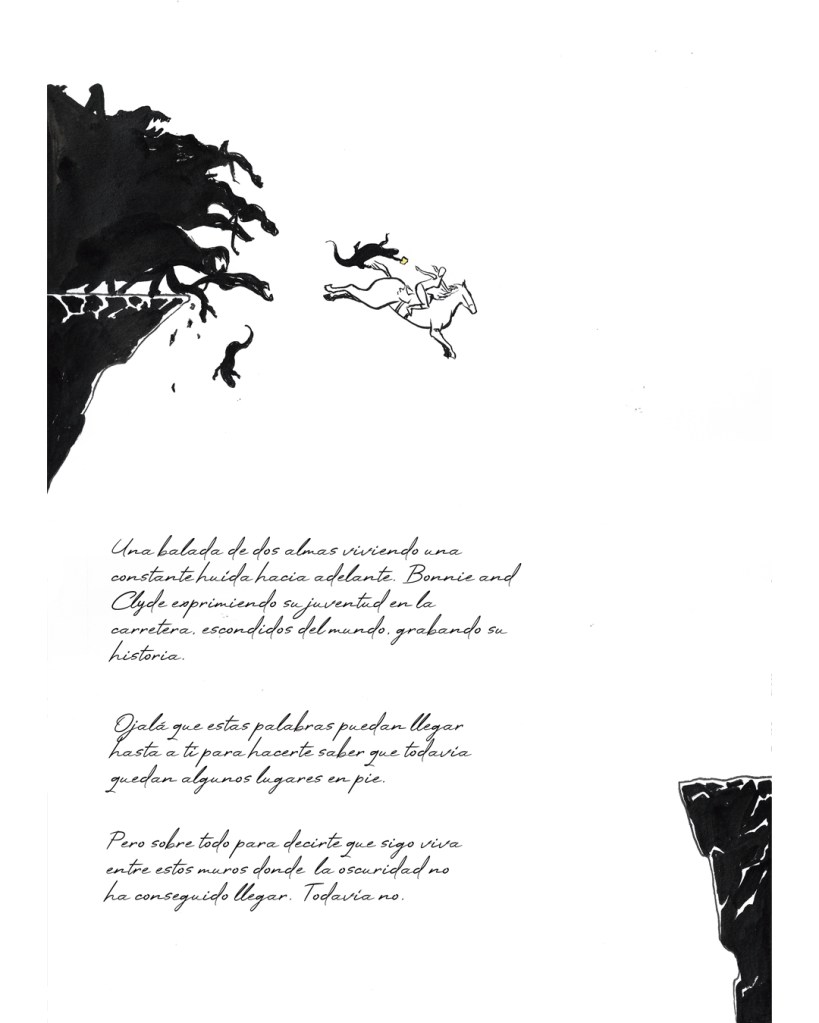 Una balada de dos almas viviendo una
constante huída hacia adelante. Bonnie and
Clyde exprimiendo su juventud en la
carretera, escondidos del mundo, grabando su
historia.
Ojalá que estas palabras puedan llegar
hasta a ti para hacerte saber que todavía
quedan algunos lugares en pie.
Pero sobre todo para decirte que sigo viva
entre estos muros donde la oscuridad no
ha conseguido llegar. Todavía no.